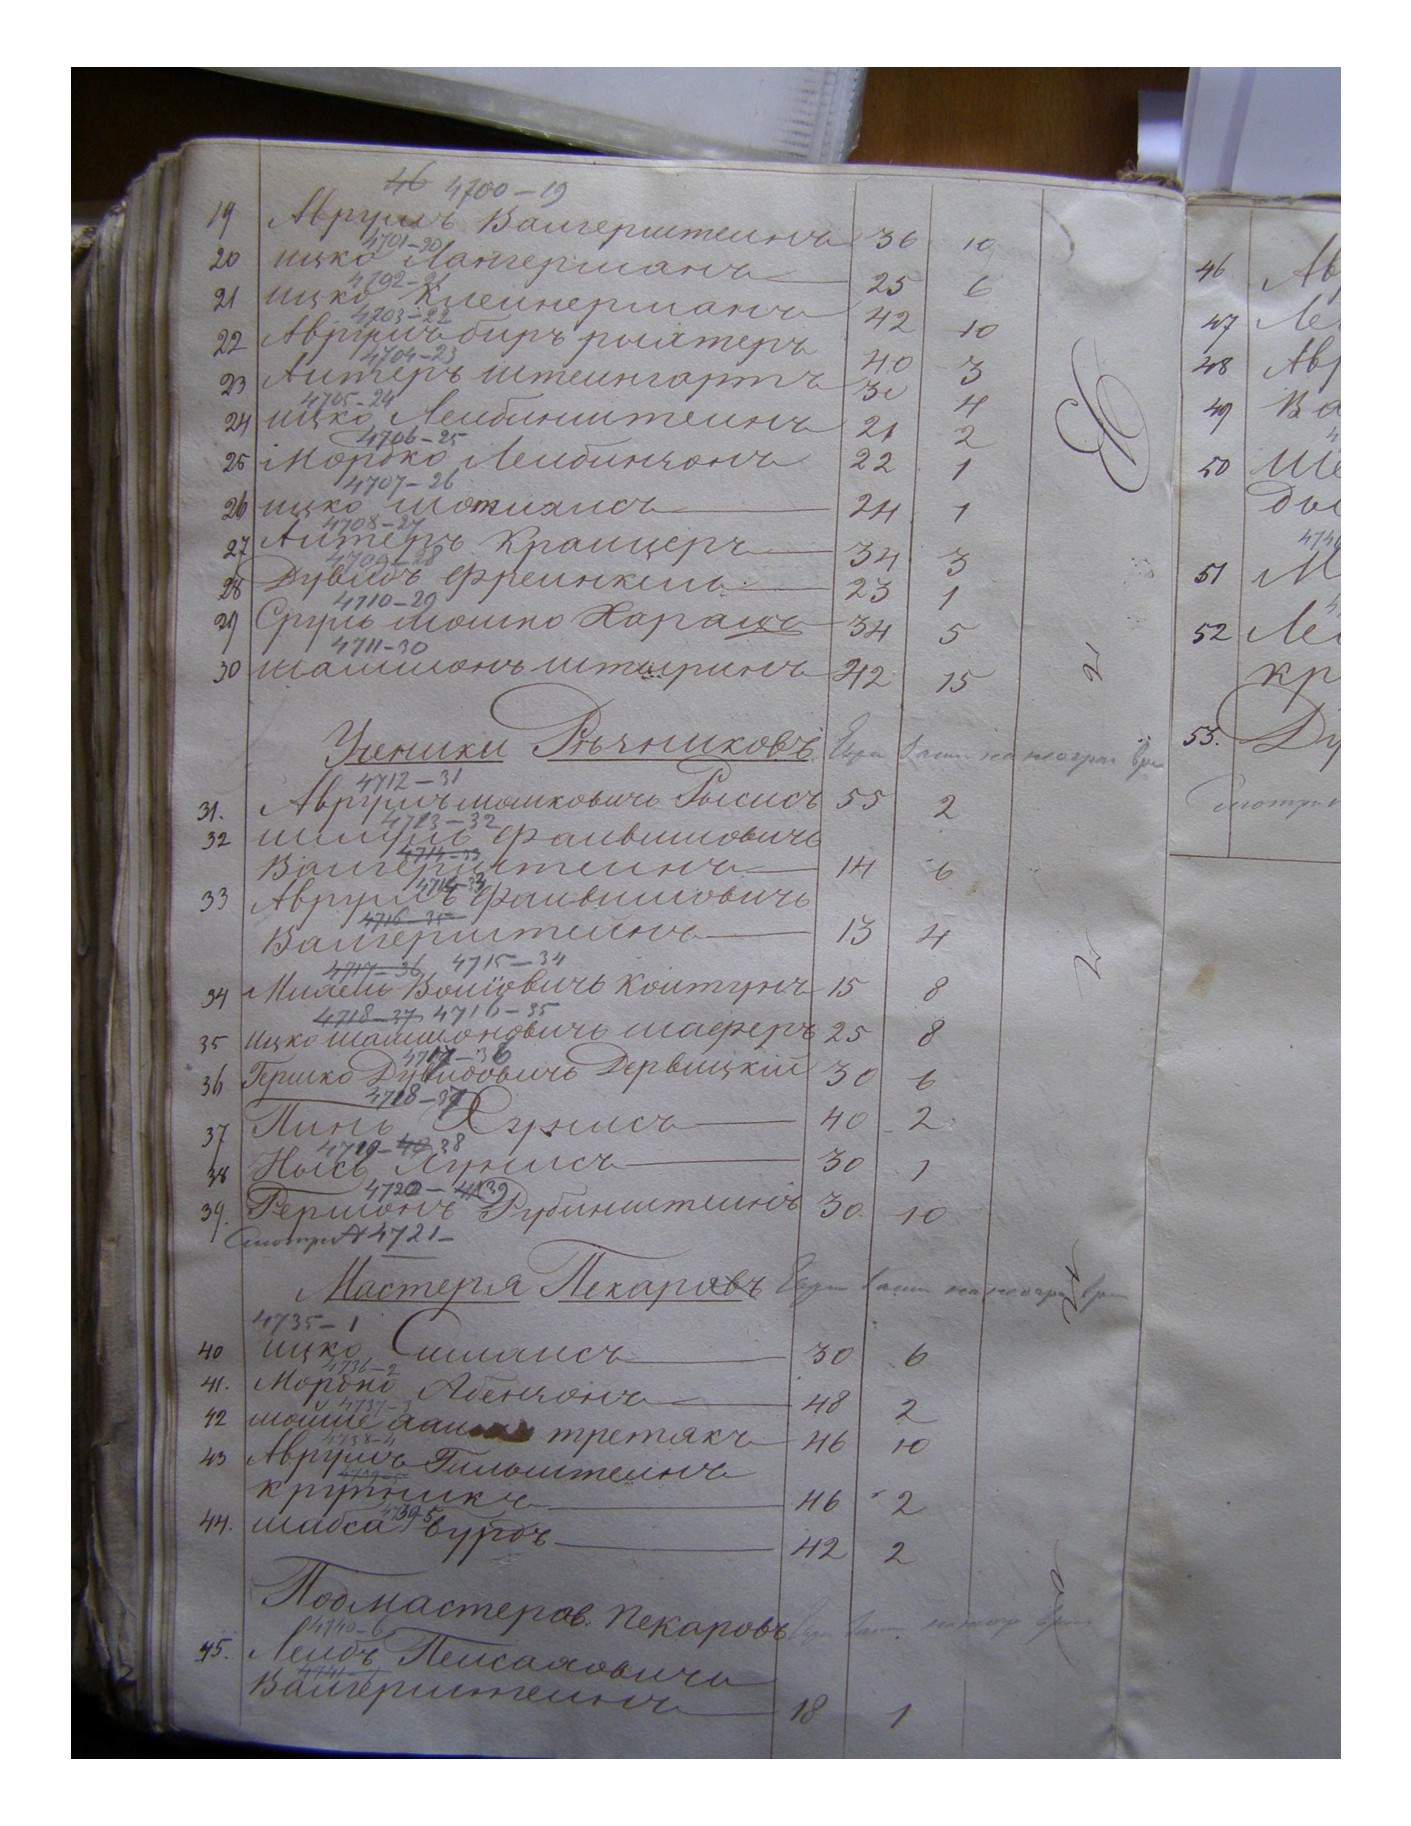 46 4700-19
19 Аврумъ Валгерштеинъ 36 10
4701-20
20 ицко Лангерманъ 25 6
4702-21
21 ицко Клеинерманъ 42 10
4703-22
22 Аврумъ биръ рыхтеръ 40 3
4704-23
23 Аитеръ штеингартъ 30 4
4705-24
24 ицко Леибинштеинъ 21 2
4706-25
25 Мордко Леибинзонъ 22 1
4707-26
26 ицко 24 1
4708-27
27 Аитеръ Краицеръ 34 3
4709-28
28 Дувидъ Френкель 23 1
4710-29
29 Сруль мошко Харацъ 34 5
4711-30
30 шаимонъ 42 15
Ученики Рѣзниковъ
4712-31
31. Аврумъ мошковичъ Рысисъ 55 2
4713-32
32 шмуль Фаивишовичъ
4714-33
Валгерштеинъ 14 6
4714-33
33 Аврумъ Фаивишовичъ
4716-35
Валгерштеинъ 13 4
4717-36 4715-34
34 Михель Волковичъ Коитунъ 15 8
4718-37 4716-35
35 ицко шаимоновичъ шаферъ 25 8
4717-36
36 Гершко Дувидовичъ Дервицкій 30 6
4718-37
37 Пинь Хунисъ 40 2
4719-40 38
38 Нысь Хунисъ 30 1
4720-41 39
39. Гершонъ Рубинштеинъ 30 10
Смотри № 4721-
Мастера Пекаровъ
4735-1
40 ицко Симаисъ 30 6
4736-2
41. Мордко Абензонъ 48 2
4737-3
42 мошше третякъ 46 10
4738-4
43 Аврумъ Гильштеинъ
крупникъ 46 2
4739-5
44. шабса бурдъ 42 2
Подмастеровъ Пекаровъ
4740-6
45. Леибъ Пеисаховичъ
4741-7
Валгерштеинъ 18 1
46 Ав
47 Ле
48 Авр
49 Ва
50 ше
51 М
52 Ле
кр
53. Ду
Смотри